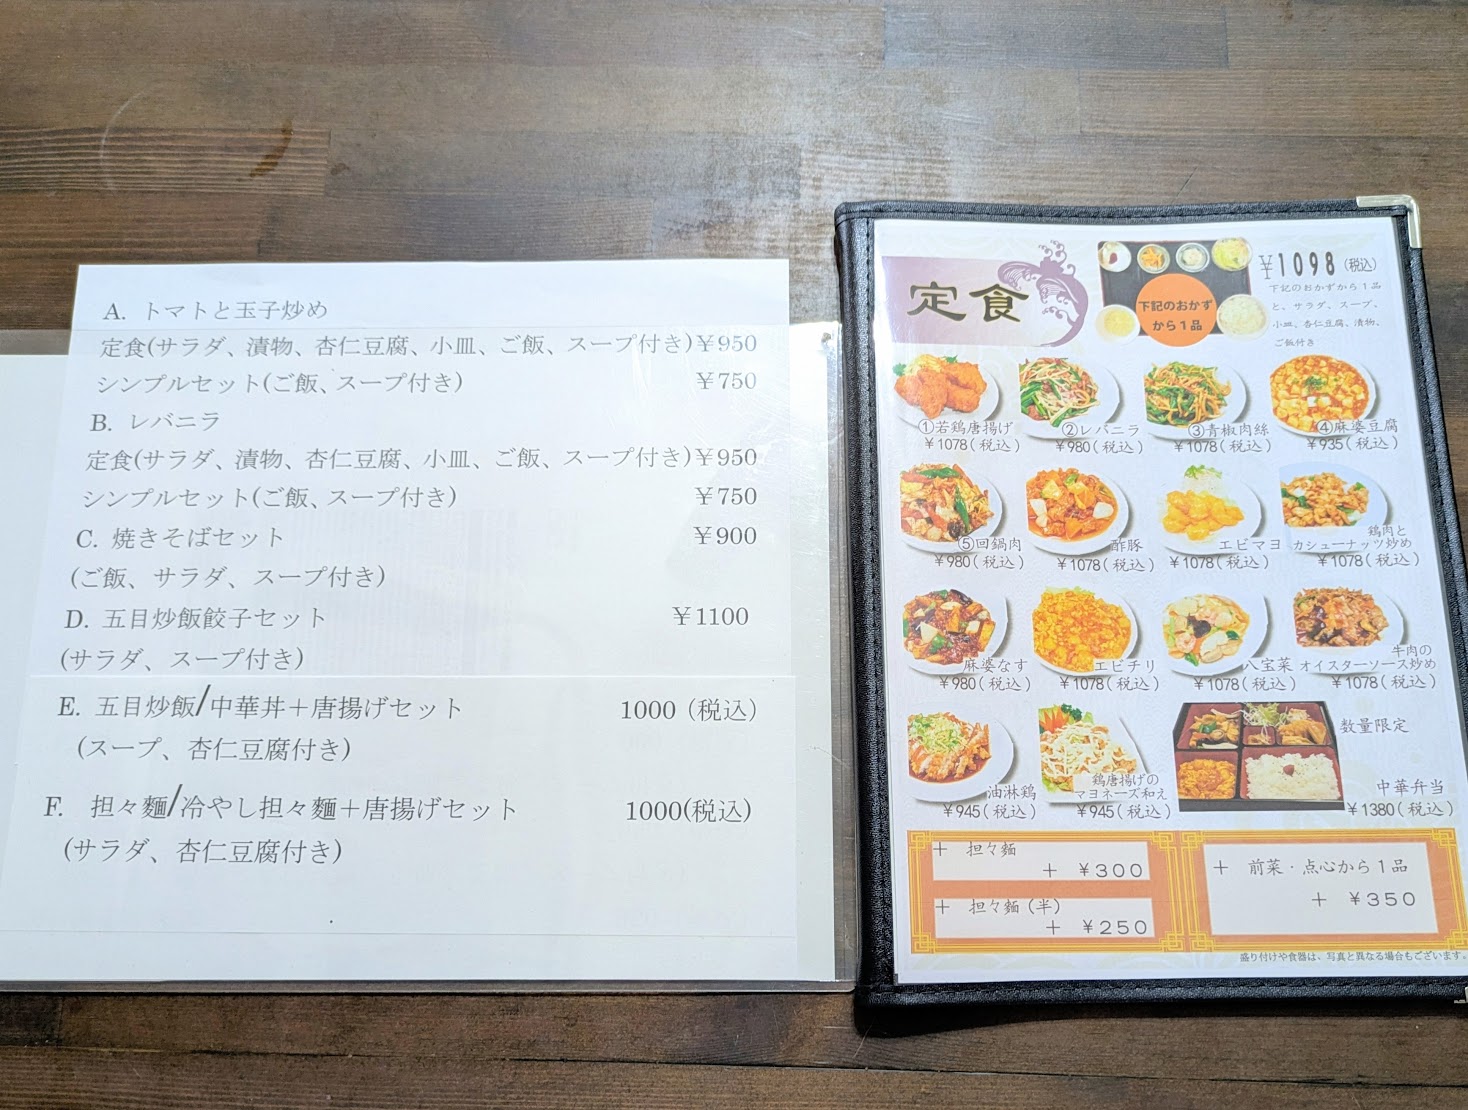 A. トマトと玉子炒め
定食(サラダ、漬物、杏仁豆腐、小皿、ご飯、スープ付き)￥950
シンプルセット(ご飯、スープ付き) ￥750
B. レバニラ
定食(サラダ、漬物、杏仁豆腐、小皿、ご飯、スープ付き)￥950
シンプルセット(ご飯、スープ付き) ￥750
C. 焼きそばセット ￥900
(ご飯、サラダ、スープ付き)
D. 五目炒飯餃子セット ￥1100
(サラダ、スープ付き)
E. 五目炒飯/中華丼＋唐揚げセット 1000 (税込)
(スープ、杏仁豆腐付き)
F. 担々麵/冷やし担々麵＋唐揚げセット 1000(税込)
(サラダ、杏仁豆腐付き)
定食
下記のおかず
から１品
￥1098 (税込)
下記のおかずから１品
と、サラダ、スープ、
小皿、杏仁豆腐、漬物、
ご飯付き
①若鶏唐揚げ
￥1078(税込)
②レバニラ
￥980(税込)
③青椒肉絲
￥1078(税込)
④麻婆豆腐
￥935(税込)
⑤回鍋肉
￥980(税込)
酢豚
￥1078(税込)
エビマヨ
￥1078(税込)
鶏肉と
カシューナッツ炒め
￥1078(税込)
麻婆なす
￥980(税込)
エビチリ
￥1078(税込)
八宝菜
￥1078(税込)
牛肉の
オイスターソース炒め
￥1078(税込)
油淋鶏
￥945(税込)
鶏唐揚げの
マヨネーズ和え
￥945(税込)
数量限定
中華弁当
￥1380(税込)
＋ 担々麵
＋ ￥300
＋ 担々麵(半)
＋ ￥250
＋ 前菜・点心から１品
＋ ￥350
盛り付けや食器は、写真と異なる場合もございます。